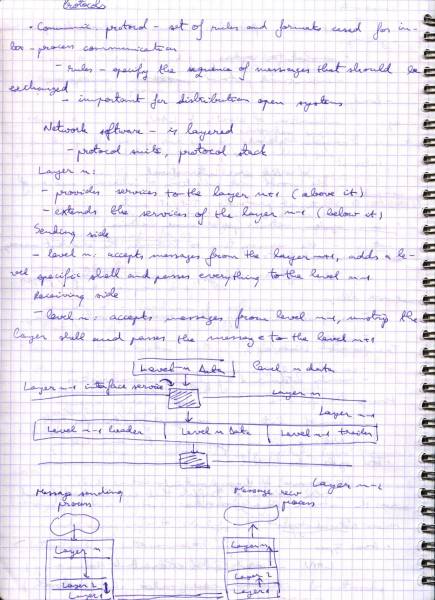 Protocols
• Communic. protocol - set of rules and formats used for in-
ter-process communication
- rules - specify the sequence of messages that should be
exchanged
- important for distribution open systems
Network software - is layered
- protocol suite, protocol stack
Layer n:
- provides services to the layer n+1 (above it)
- extends the services of the layer n-1 (below it)
Sending side
- level n: accepts messages from the layer n+1, adds a le-
vel specific shell and passes everything to the level n-1
Receiving side
- level n: accepts messages from level n-1, unstrip the
layer shell and passes the message to the level n+1
Level-n Data level n data
Layer n-1 interface service
Layer n
Layer n-1
Level n-1 header Level n Data Level n-1 trailer
Layer n-2
Message sending Message recv
process process
Layer n Layer n
Layer 2 Layer 2
Layer 1 Layer 1